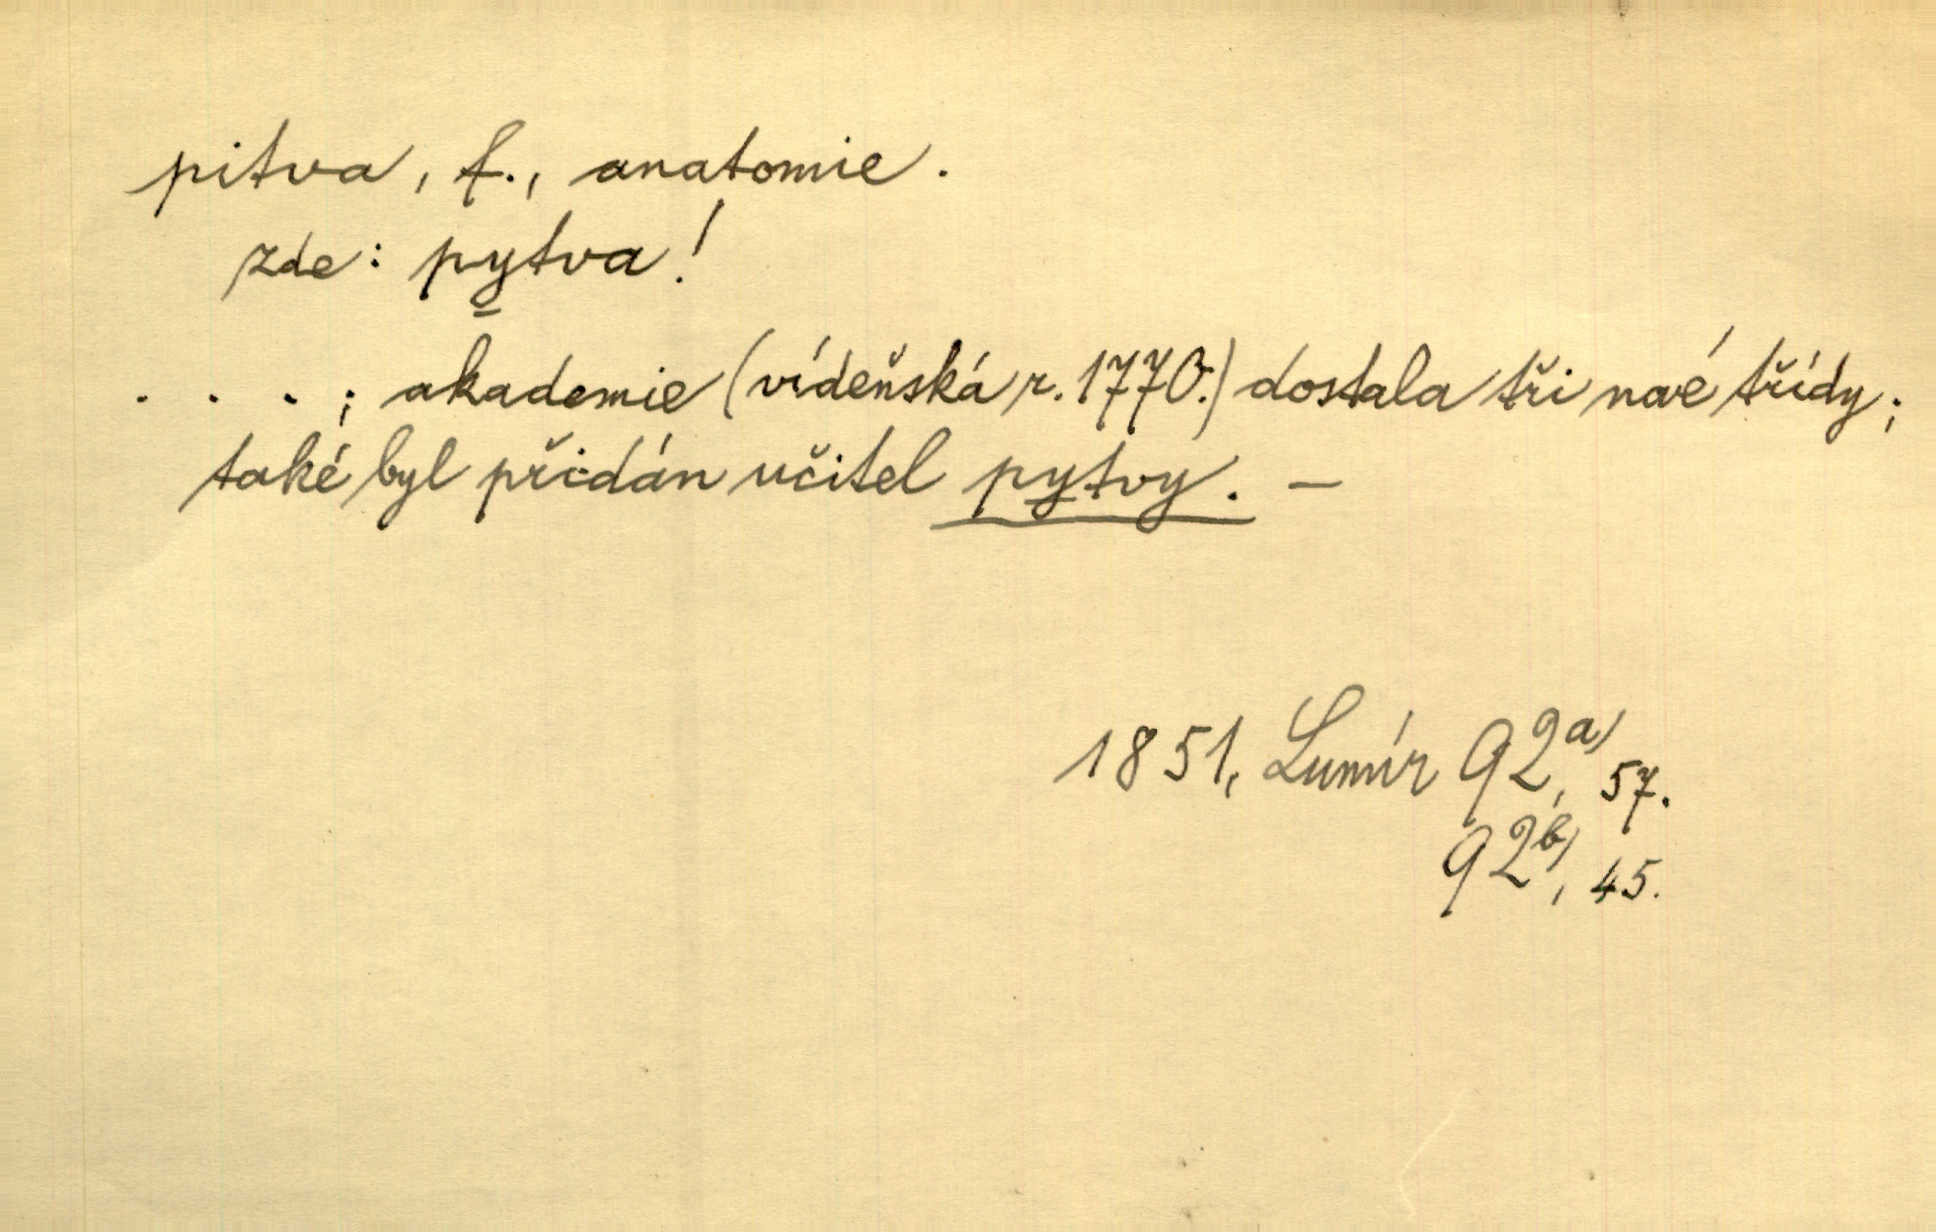 pitva, f., anatomie.
zde: pytva!
. . . ; akademie (vídeňská r. 1770.) dostala tři nové třídy;
také byl přidán učitel pytvy. —
1851, Lumír 92a), 57.
92b), 45.